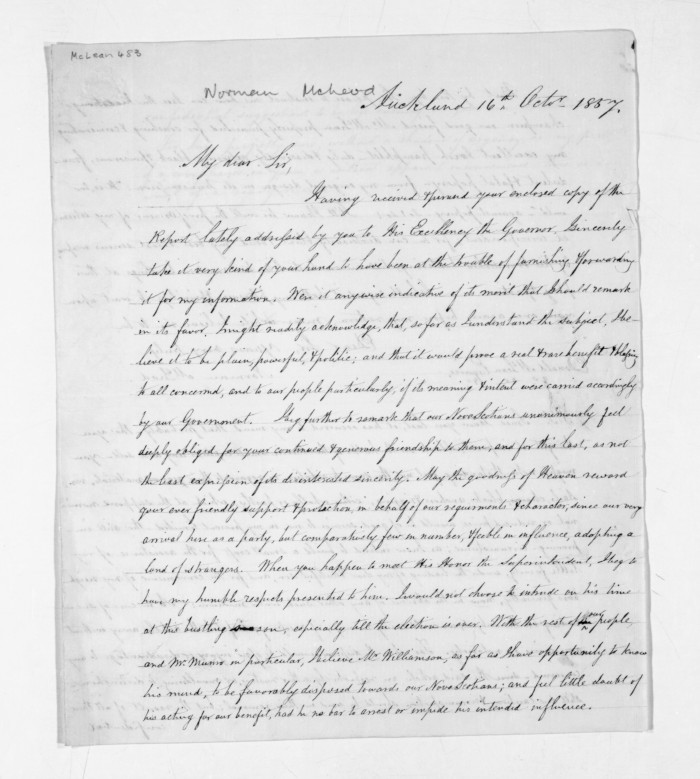 McLean 483
Norman McLeod
Auckland 16th Octr. 1857.
My dear Sir,
Having received & perused your enclosed copy of the
Report lately addressed by you to His Excellency the Governor, I sincerely
take it very kind of your hand to have been at the trouble of furnishing & forwarding
it for my information. Were it anywise indicative of its merit that I should remark
in its favor, I might readily acknowledge, that, so far as I understand the subject, I be-
lieve it to be plain, powerful, & politic; and that it would prove a real & rare benefit & blessing
to all concerned, and to our people particularly, if its meaning & intent were carried accordingly
by our Government. I beg further to remark that our NovaScotians unanimously feel
deeply obliged for your continued & generous friendship to them, and for this last, as not
the least expression of its disinterested sincerity. May the goodness of Heaven reward
your ever friendly support & protection, in behalf of our requirments & character, since our very
arrival here as a party, but comparatively few in number, & feeble in influence, adopting a
land of strangers. When you happen to meet His Honor the Superintendent, I beg to
have my humble respects presented to him. I would not choose to intrude on his time
at this bustling season, especially till the election is over. With the rest of our people,
and Mr. Munro in particular, I believe Mr Williamson, as far as I have opportunity to know
his mind, to be favorably disposed towards our NovaScotians; and feel little doubt of
his acting for our benefit, had he no bar to arrest or impede his intended influence.